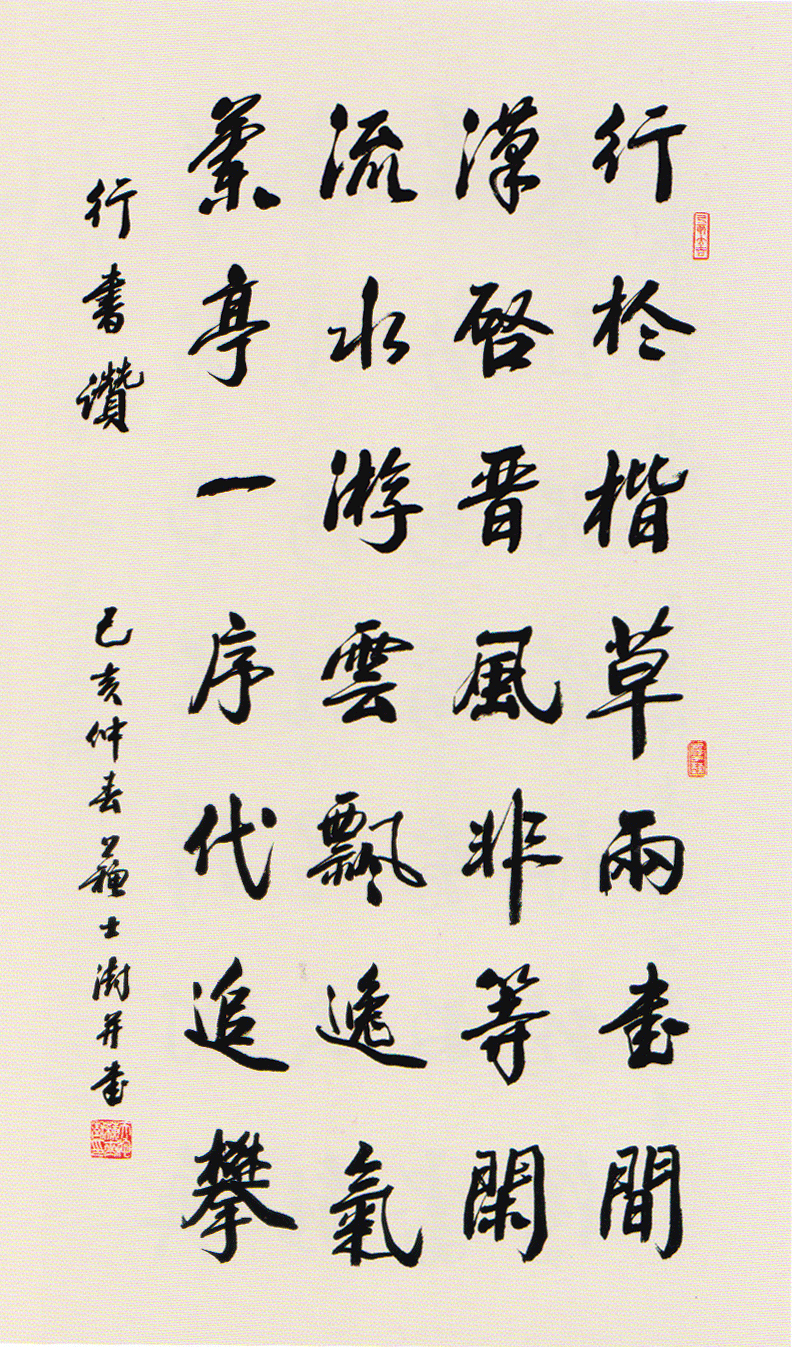 行於楷草兩書間
漢啓晋風非等閑
流水游雲飄逸氣
蘭亭一序代追攀
行書讚
己亥仲春蘇士澍并書